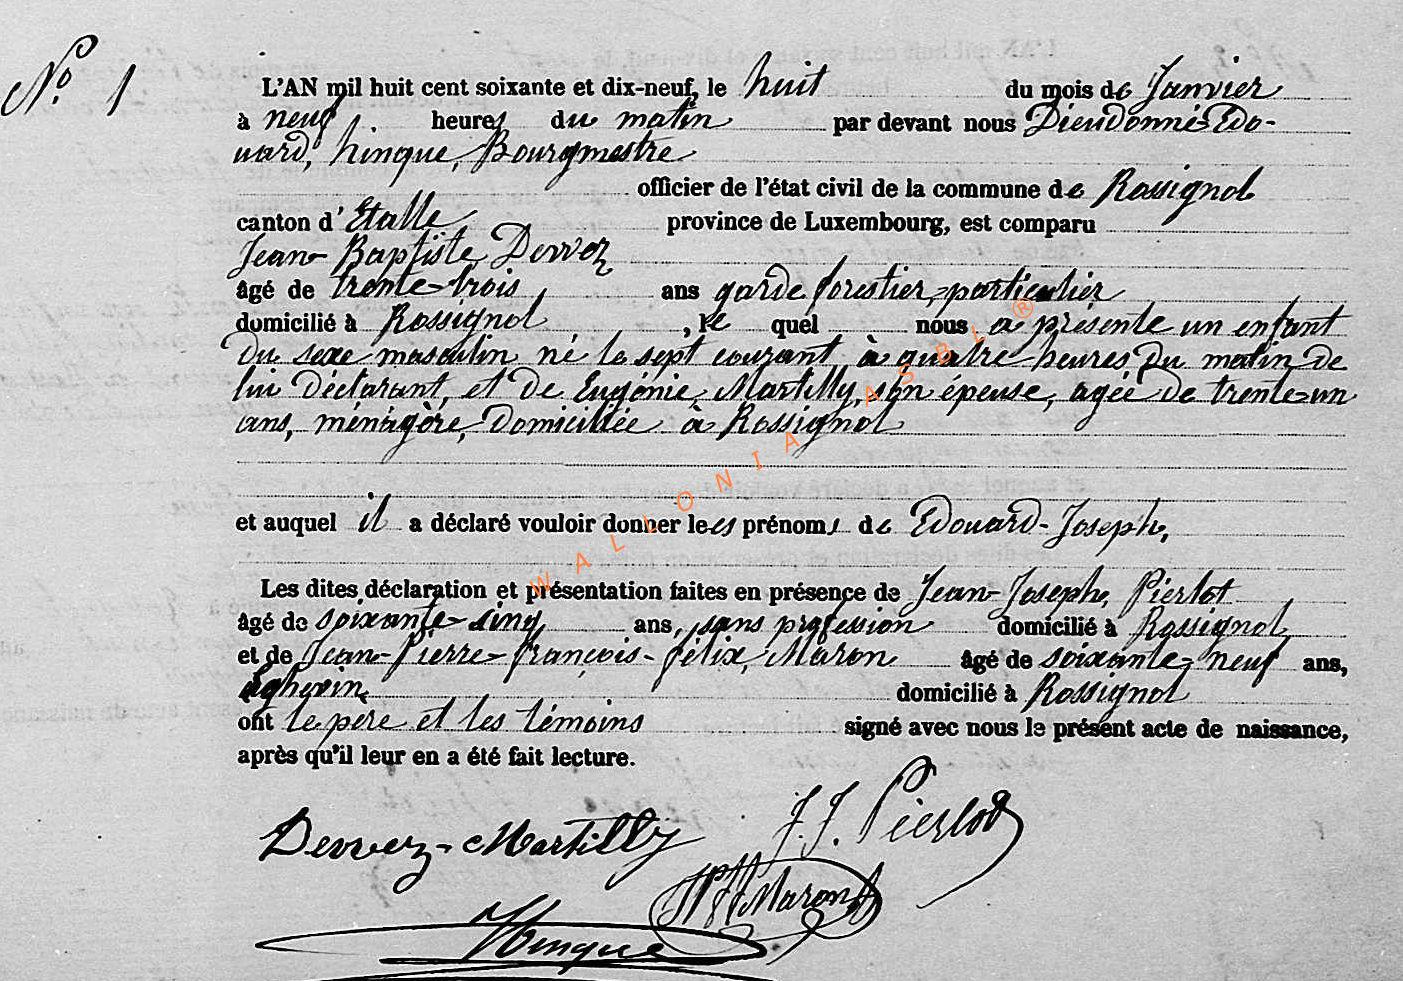 N° 1
L'AN mil huit cent soixante et dix-neuf, le huit du mois de Janvier
à neuf heures du matin par devant nous Dieudonné-Edo-
uard, hinque, Bourgmestre
officier de l'état civil de la commune de Rossignol
canton d'Etalle province de Luxembourg, est comparu
Jean-Baptiste Dervez
âgé de trente-trois ans garde forestier-particulier
domicilié à Rossignol, le quel nous a présenté un enfant
du sexe masculin né le sept courant à quatre heures du matin de
lui déclarant, et de Eugénie Martilly, son épouse, agée de trente-un
ans, ménagère, domiciliée à Rossignol
et auquel il a déclaré vouloir donner les prénoms de Edouard-Joseph,
Les dites déclaration et présentation faites en présence de Jean-Joseph, Pierlot
âgé de soixante-cinq ans, sans profession domicilié à Rossignol,
et de Jean-Pierre-françois-félix, Maron âgé de soixante-neuf ans,
Echevin, domicilié à Rossignol
ont le père et les témoins signé avec nous le présent acte de naissance,
après qu'il leur en a été fait lecture.
Dervez-Martilly J. J. Pierlot
Maron
Hinque
WALLONIA ASBL ®